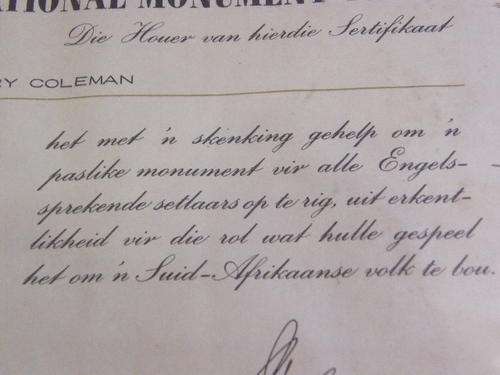 NATIONAL MONUMENT
Die Houer van hierdie Sertifikaat
RY COLEMAN
het met 'n skenking gehelp om 'n
paslike monument vir alle Engels-
sprekende setlaars op te rig, uit erkent-
likheid vir die rol wat hulle gespeel
het om 'n Suid-Afrikaanse volk te bou.